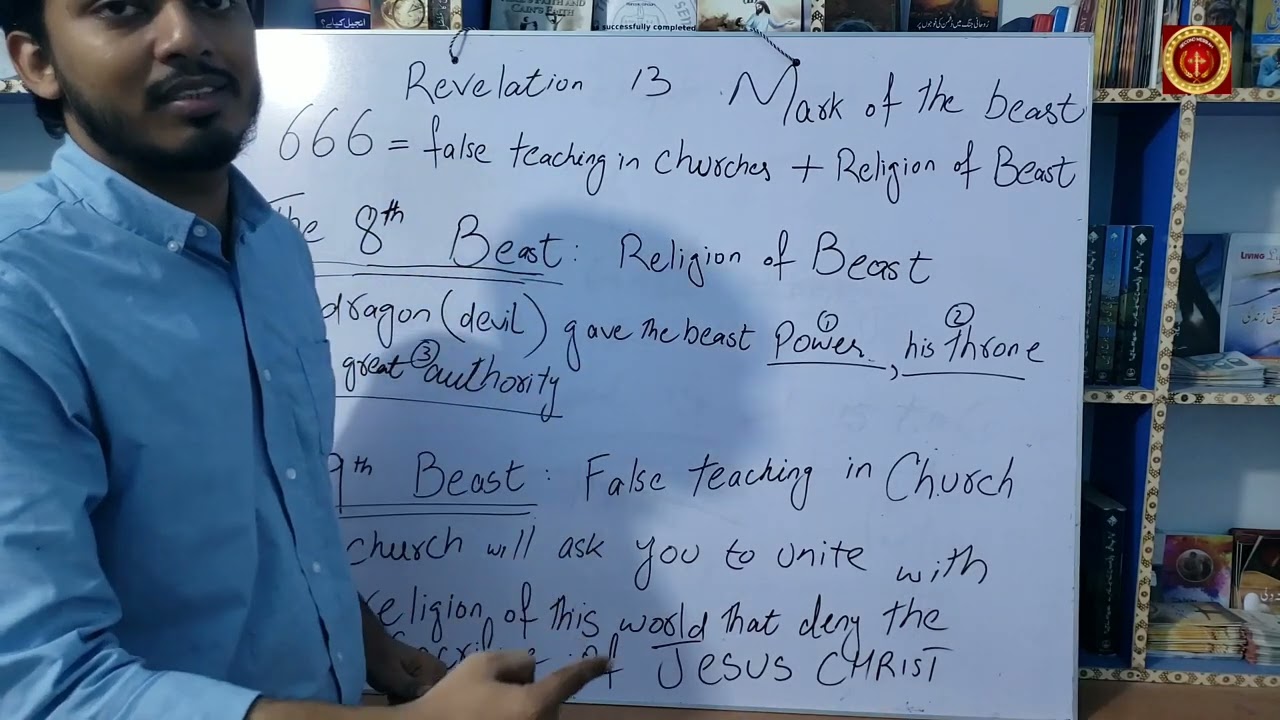 AND CAIN'S FAITH
successfully completed
Revelation 13 Mark of the beast
666 = false teaching in churches + Religion of Beast
The 8th Beast: Religion of Beast
dragon (devil) gave the beast ① Power, ② his throne
great ③ authority
9th Beast: False teaching in Church
church will ask you to unite with
religion of this world that deny the
of JESUS CHRIST
LIVING